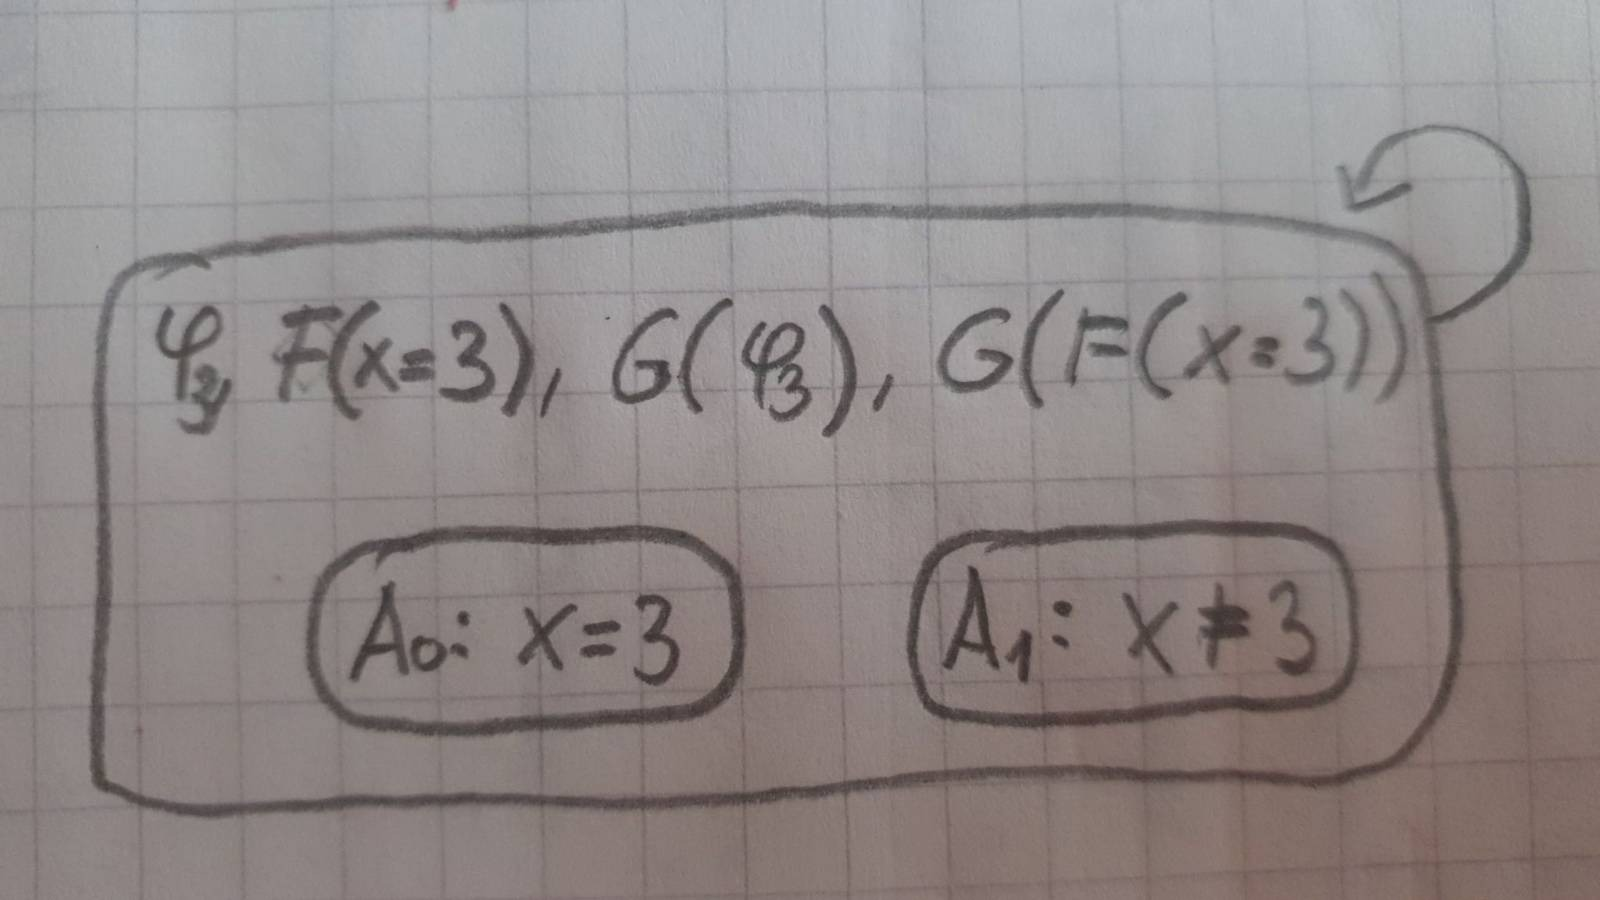 φ₃, F(x=3), G(φ₃), G(F(x=3))
A₀: x=3
A₁: x≠3